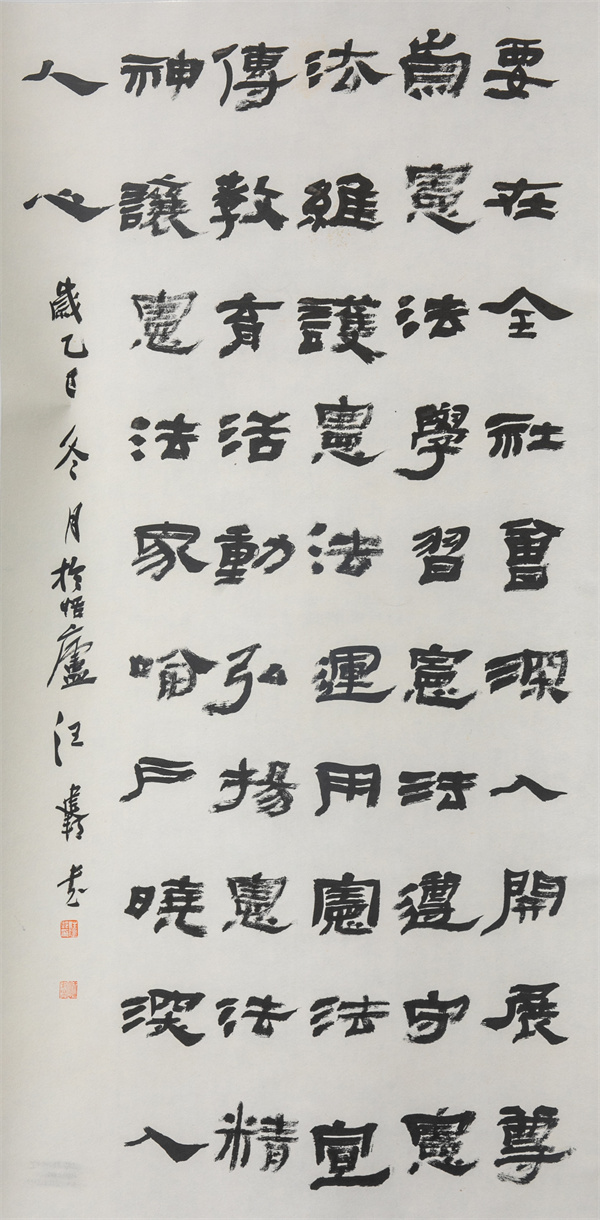 要在全社會深入開展尊
崇憲法學習憲法遵守憲
法維護憲法運用憲法宣
傳教育活動弘揚憲法精
神讓憲法家喻戶曉深入
人心
歲乙巳冬月於悟廬汪書